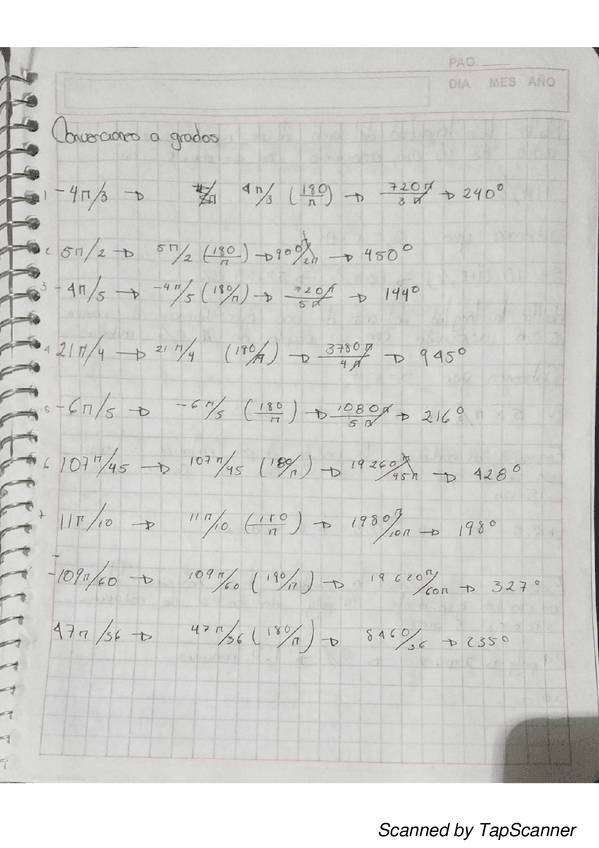 PAG.
DIA MES AÑO
Conversiones a grados
1 -4π/3 → 4π/3 (180/π) → 720π/3π → 240°
2 5π/2 → 5π/2 (180/π) → 900π/2π → 450°
3 -4π/5 → -4π/5 (180/π) → 720π/5π → 144°
4 21π/4 → 21π/4 (180/π) → 3780π/4π → 945°
5 -6π/5 → -6π/5 (180/π) → 1080π/5π → 216°
6 107π/45 → 107π/45 (180/π) → 19260π/45π → 428°
7 11π/10 → 11π/10 (180/π) → 1980π/10π → 198°
-109π/60 → 109π/60 (180/π) → 19620π/60π → 327°
47π/36 → 47π/36 (180/π) → 8460/36 → 235°
Scanned by TapScanner